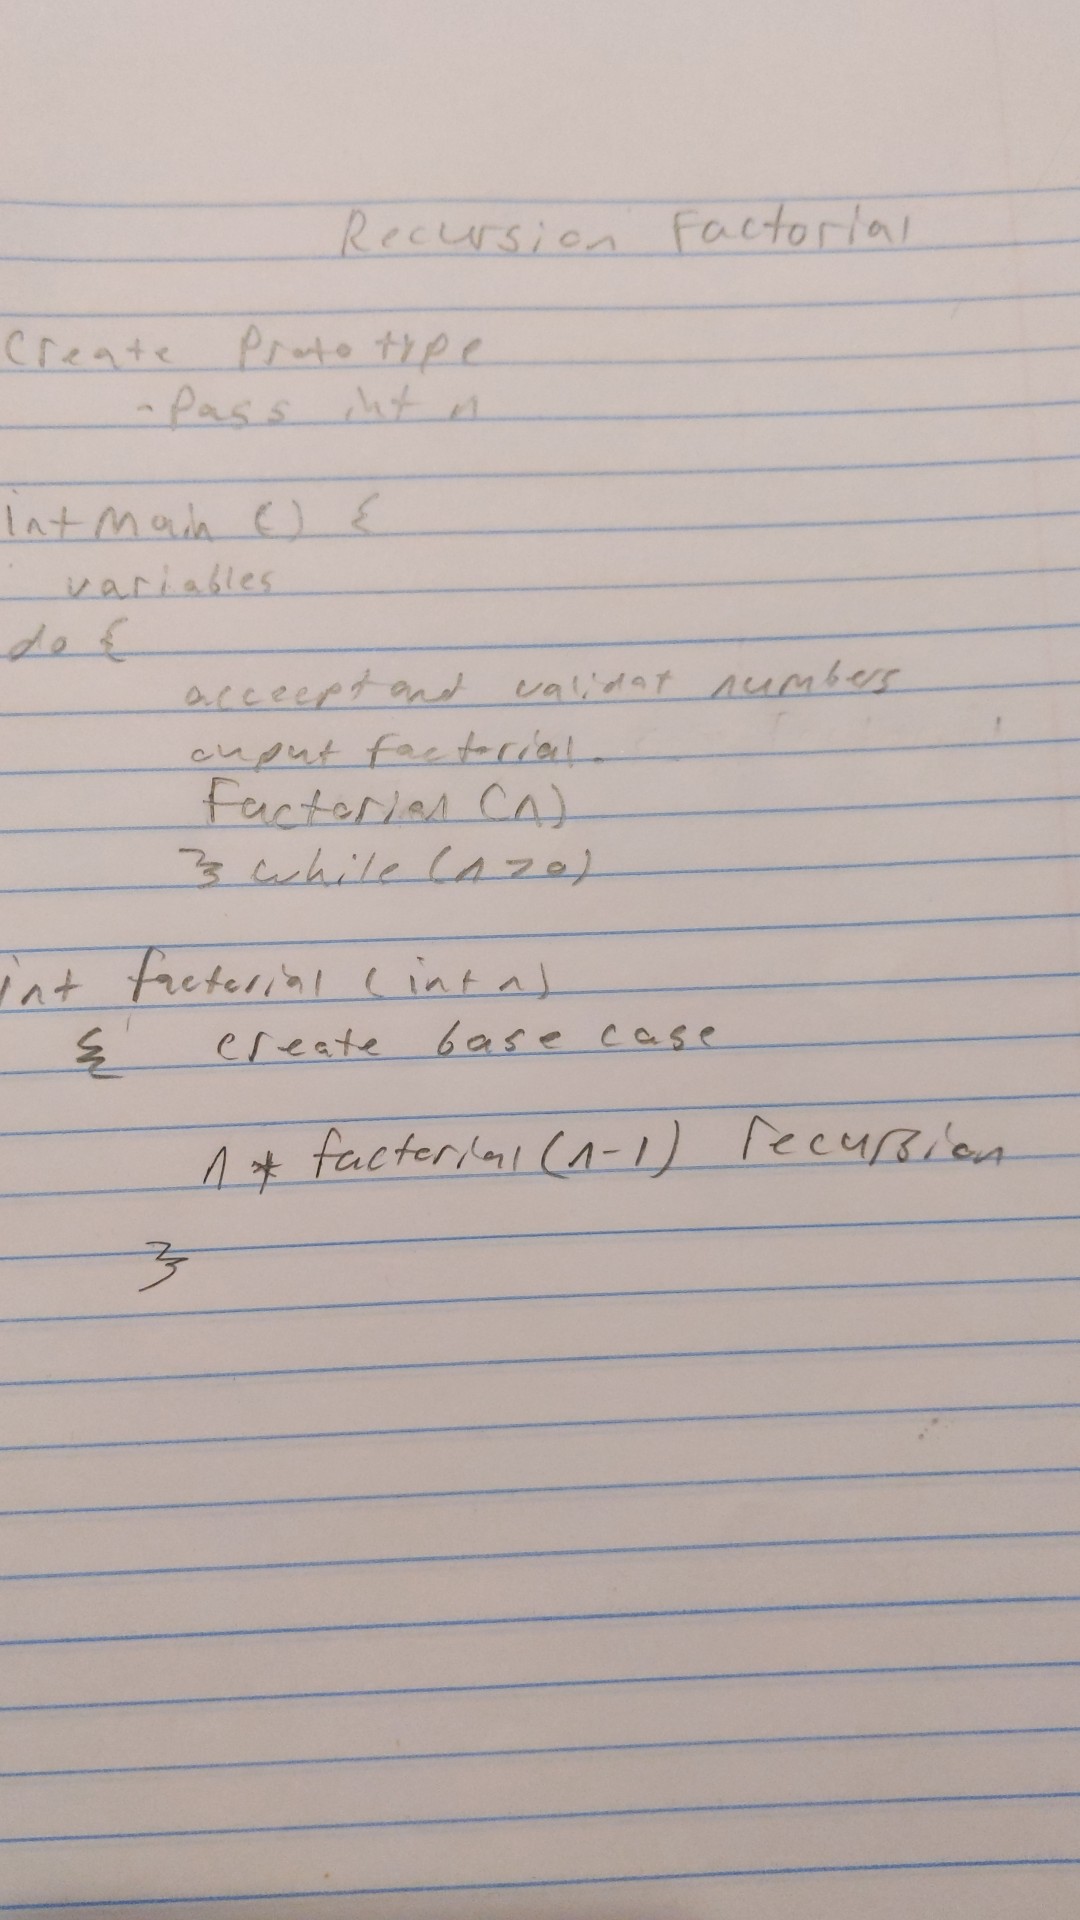 Recursion Factorial
Create Prototype
- Pass int n
int main () {
variables
do {
acceept and validat numbers
ouput factorial.
Factorial (n)
} while (n > 0)
int factorial (int n)
{ create base case
n * factorial (n-1) recursion
}